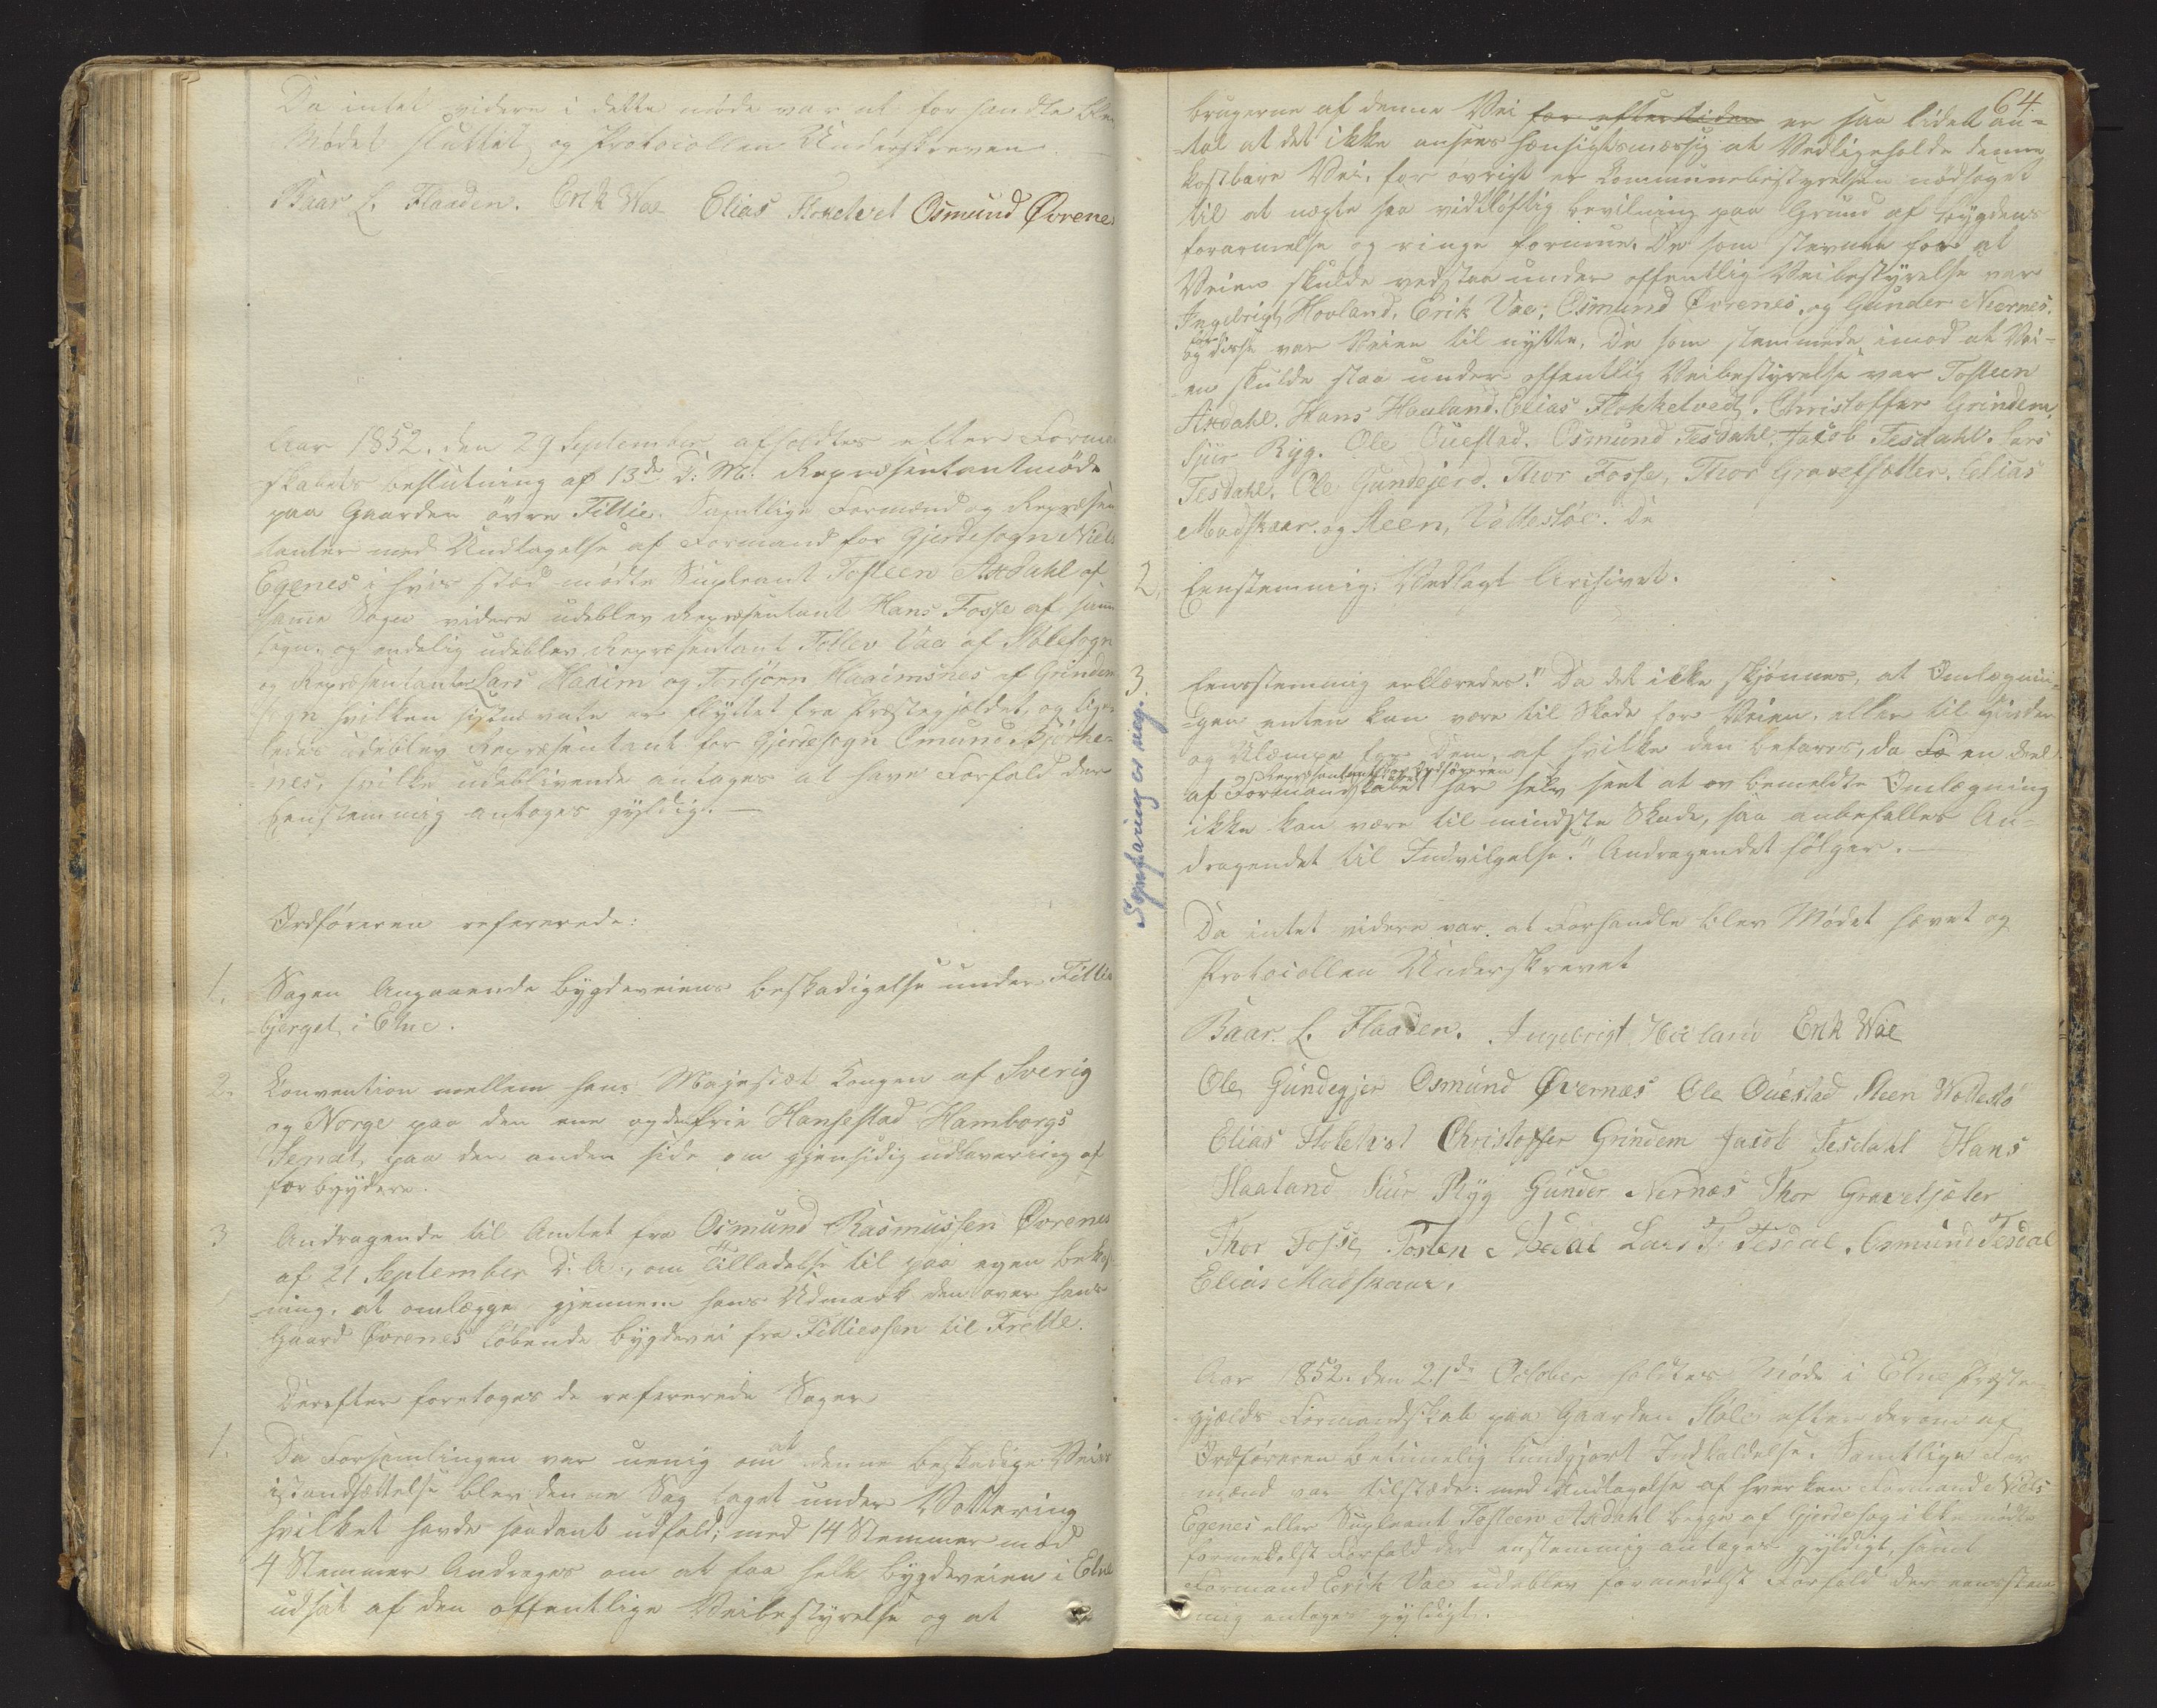 Da intet videre i dette møde var at forhandle blev
Mødet sluttet og Protocollen Underskreven
Baar L. Flaaden. Erik Wae Elias Flokelvet Osmund Øvrenes
Aar 1852. den 29 September afholdtes efter Formand
skabets beslutning af 13de d: M: Repræsentantmøde
paa Gaarden övre Fillie. Samtlige Formænd og Repræsen
tanter med Undtagelse af Formand for Gjerdesogn Niels
Egenes i hvis sted mødte Supleant Tosteen Axdahl af
samme Sogn videre udeblev Repræsentant Hans Fosse af samme
sogn. og endelig udeblev Repræsentant Tollev Vae af Stölesogn
og Repræsentanter Lars Haaim og Torbjörn Haaimsnes af Grindem
sogn hvilken sistnævnte er flyttet fra Præstegjeldet, og lige-
ledes udeblev Repræsentant for Gjerdesogn Omund Björke-
nes, hvilke udeblivende antages at have Forfald der
Eenstemmig antages gyldig. —
Ordføreren refererede:
1. Sagen Angaaende bygdeveiens beskadigelse under Fillie
bjerget i Etne.
2. Convention mellem hans Majestæt Kongen af Sverig
og Norge paa den ene og den frie Hansestad Hamborgs
Senat, paa den anden side om gjensidig udlevering af
forbrydere.
3 Andragende til Amtet fra Osmund Rasmussen Øvrenes
af 21 September d. A., om Tilladelse til paa egen bekost
ning. at omlægge gjennem hans Udmark den over hans
Gaard Øvrenes løbende bygdevei fra Filliesen til Frette.
Derefter foretoges de refererede Sager
1. Da Forsamlingen var uenig om at denne beskadige Veies
istandsættelse blev denne Sag taget under Vottering
hvilket havde saadant udfald: med 14 Stemmer mod
4 Stemmer Andrages om at faa hele bygdeveien i Etne
udsat af den offentlige Veibestyrelse og at
64.
brugerne af denne Vei for eftertiden er saa lidet an-
tal at det ikke ansees hensigtsmæssig at Vedligeholde denne
kostbare Vei. for øvrigt er Communebestyrelsen nødsaget
til at negte saa vidtløftig bevilning paa Grund af bygdens
forarmelse og ringe formue. De som stemte for at
Veien skulde vedstaa under offentlig Veibestyrelse var
Ingebrigt Hovland. Erik Vae, Osmund Øvrenes, og Gunder Nernes.
og for disse var Veien til nytte. De som stemmede imod at Vei-
en skulde staa under offentlig Veibestyrelse var Tosteen
Axdahl. Hans Haaland. Elias Flokketved. Christoffer Grindem.
Sjur Ryg. Ole Questad. Osmund Tesdahl, Jacob Tesdahl. Lars
Tesdahl. Ole Gundejerd. Thor Fosse, Thor Gravelsæter. Elias
Madskaar. og Steen, Vollestöe. De
2, Eenstemmig: Vedlagt Archivet.
3. Eensstemmig erklæredes: "Da det ikke skjønnes, at Omlægnin-
gen enten kan være til Skade for Veien. eller til Hinder
og Ulæmpe for Dem, af hvilke den befares, da Fo en Deel
Repræsentantskab Ordføreren
af Formandskabet har selv seet at ov bemeldte Omlægning
ikke kan være til mindste Skade, saa anbefalles An-
dragendet til Indvilgelse." Andragendet følger. —
Da intet videre var at Forhandle blev Mødet hævet og
Protocollen Underskrevet
Baar. L. Flaaden. Ingebrigt Hovland Erik Wae
Ole Gundegjer Osmund Øvernæs Ole Questad Steen Wollestö
Elias Flokelvet Christoffer Grindem Jacob Tesdahl Hans
Haaland Siur Ryg Gunder Nernæs Thor Gravelsæter
Thor Fosse Tosten Axdal Lars T. Tesdal. Osmund Tesdal
Elias Madskaar.
Aar 1852. den 21de October holdtes Møde i Etne Preste
gjælds Formandskab paa Gaarden Støle efter derom af
Ordføreren betimelig kundgjort Indkaldelse. Samtlige For
mænd var tilstæde: med Undtagelse af hverken Formand Niels
Egenes eller Supleant Tosteen Axdahl begge af Gjerdesog ikke mødte
formedelst Forfald der enstemmig antages gyldigt, samt
Formand Erik Vae udeblev formedelst Forfald der eenstem
mig antages gyldigt.